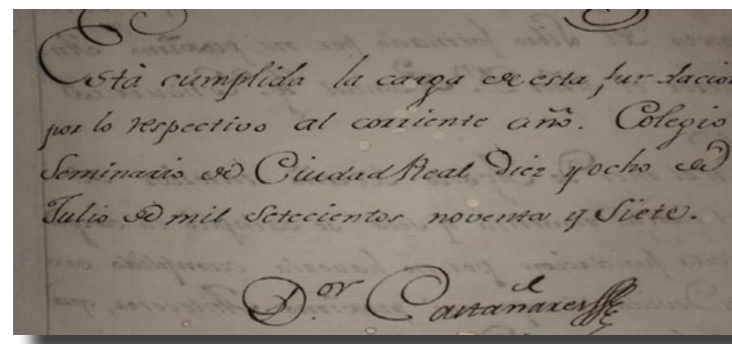 Està cumplida la carga de esta fundacion
por lo respectivo al corriente año. Colegio
Seminario de Ciudad Real Diez y ocho de
Julio de mil Setecientos noventa y Siete.
D.or Castañares